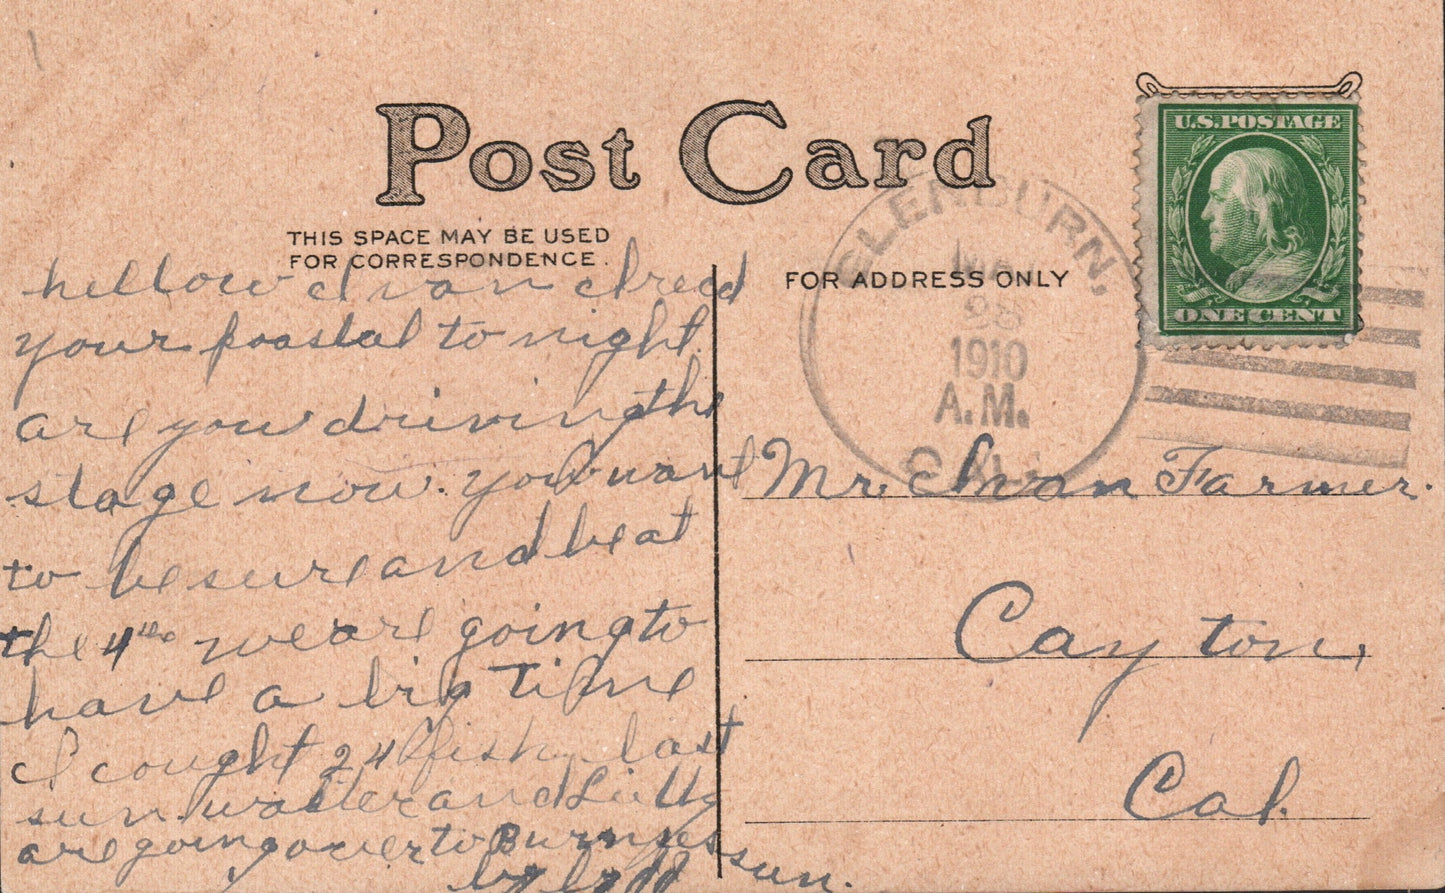 Post Card
THIS SPACE MAY BE USED
FOR CORRESPONDENCE.
FOR ADDRESS ONLY
U.S. POSTAGE
ONE CENT
GLENBURN,
1910
A.M.
CAL.
hellow Ivan
your poastal to night.
are you driving the
stage now. you want
to be sure and be at
the 4th we are going to
have a big time
I cought 24 fish last
sun. walter and
are going over to Burnyes sun.
by by
Mr. Ivan Farmer.
Cayton,
Cal.